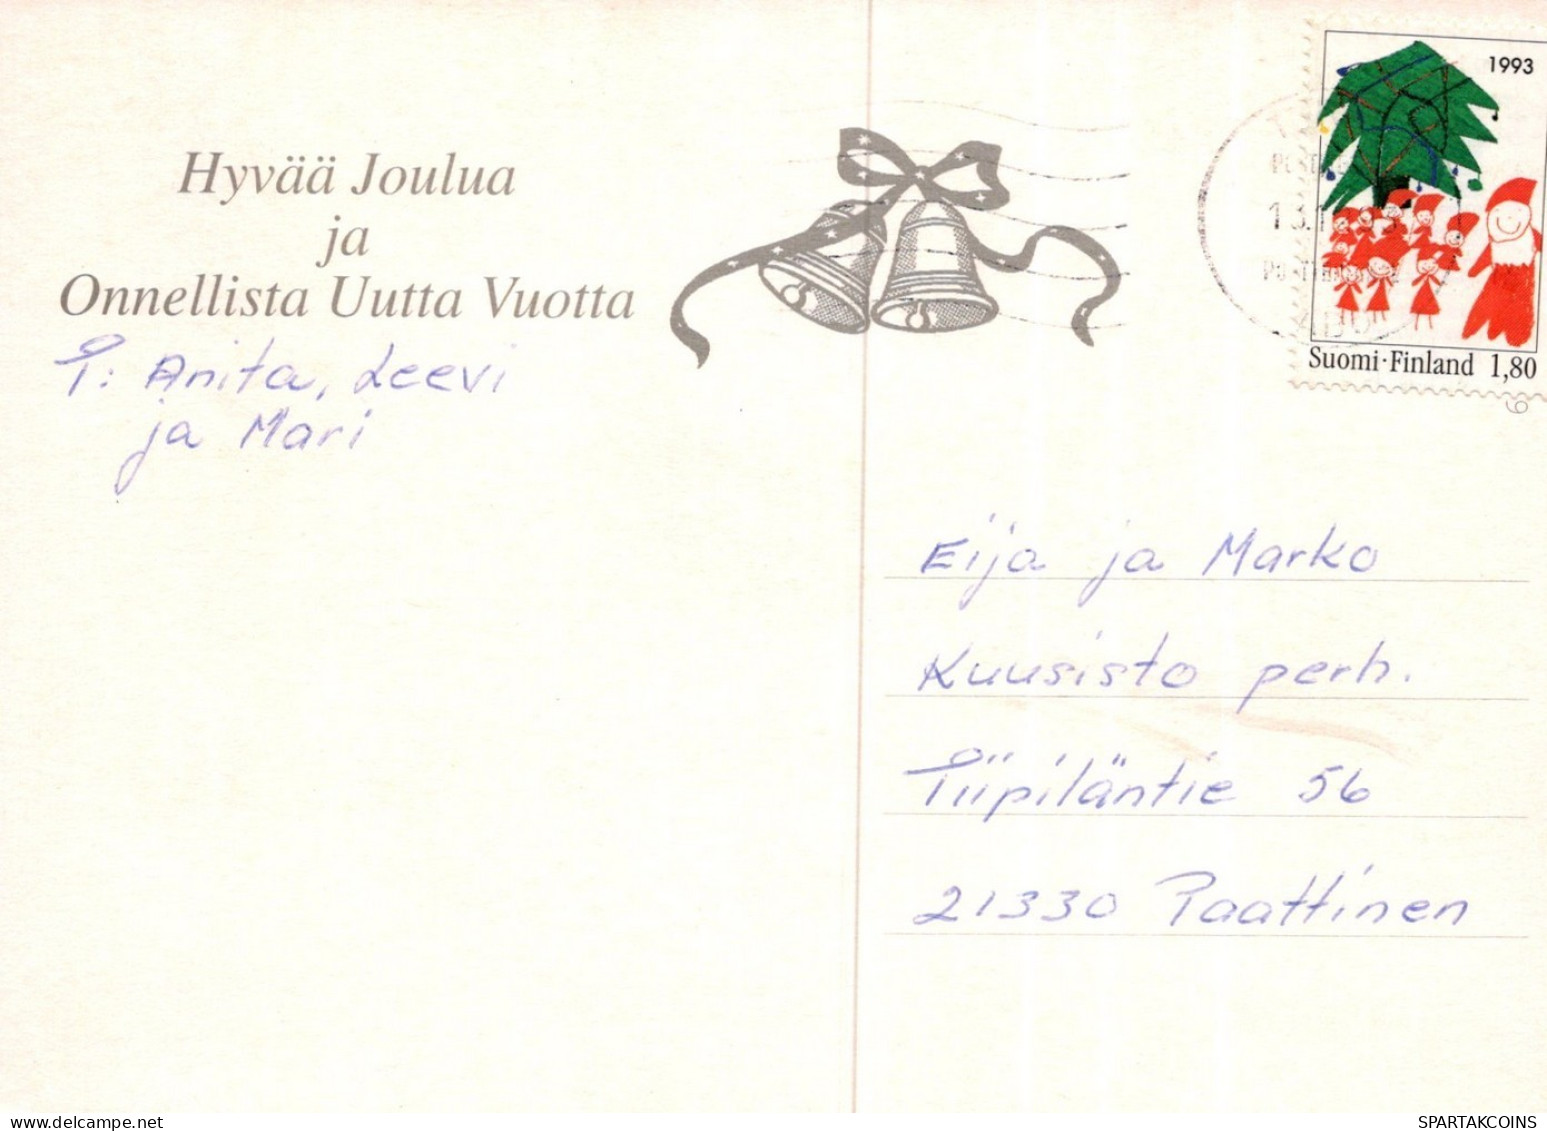 Hyvää Joulua
ja
Onnellista Uutta Vuotta
T: Anita, Leevi
ja Mari
1993
13.
Suomi·Finland 1,80
9
Eija ja Marko
Kuusisto perh.
Tiipiläntie 56
21330 Paattinen
delcampe.net
SPARTAKCOINS